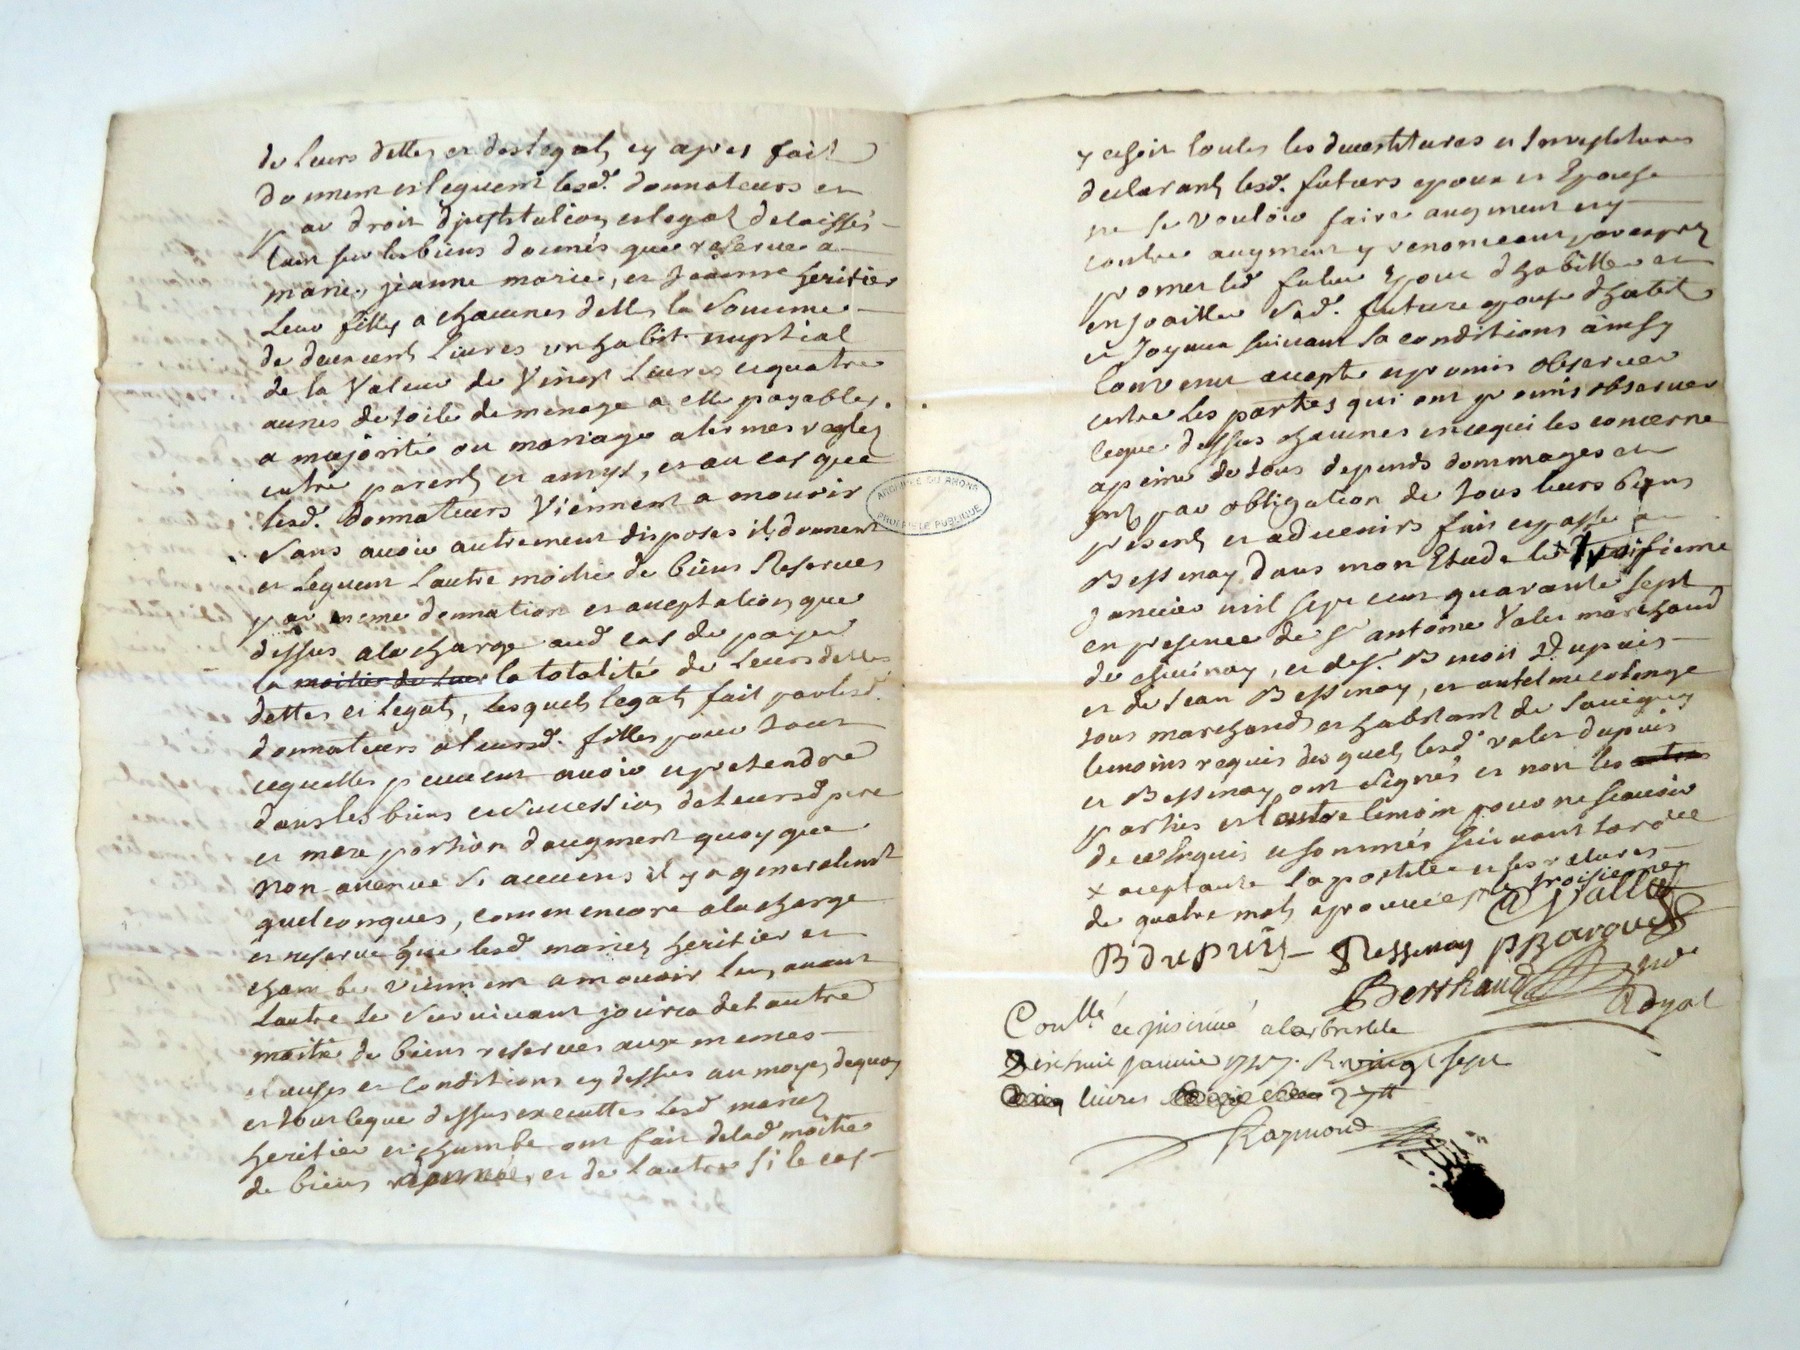 de leurs dettes et des legats cy apres fait
donnent et leguent lesd. donnateurs et
par droit d'institution et legat delaissés
tant sur les biens donnés que reserves a
marie, jeanne marie, et Jeanne heritier
leur filles a chacunes delles la somme
de deux cent livres un habit nuptial
de la Valeur de Vingt Livres et quatre
aunes de toile de menage a elle payables
a majorité ou mariage a termes reglez
entre parents et amys, et au cas que
lesd. Donnateurs Viennent a mourir
sans avoir autrement disposes ils donnent
et leguent l'autre moitie de biens Reserves
par meme donnation et acceptation que
dessus a la charge aud cas de payer
la moitier de leur la totalité de leurs dettes
dettes et legats, lesquels legats fait par lesd.
donnateurs a leursd. filles pour tout
ce quelles peuvent avoir et pretendre
dans les biens et succession de leursd pere
et mere portion d'augment quoy que
non avenue si aucuns il y a generalement
quelconques, comm encore a la charge
et reservé que lesd mariez heritier et
chambe viennent a mourir lun avant
lautre le survivant jouira de lautre
moitie de biens reserves aux memes
clauses et conditions cy dessus au moyen de quoy
et tout ceque dessus executtes lesd mariez
heritier et chambe ont fait delad moitie
de biens et de lautre si le cas
ARCHIVES DU RHÔNE
PROPRIÉTÉ PUBLIQUE
y echoit toutes les devestitures et Investitures
declarants lesd. futurs epoux et Epouse
ne se vouloir faire augment ny
contre augment y renonceant par exprez
promet led futur Epoux d'habiller et
enjoailler sad. future epouse d'habits
et Joyaux suivant sa conditions ainsy
Convenu accepté et promis observer
entre les parties qui ont promis observer
ceque dessus chacunes en cequi les concerne
a peine de tous depends dommages et
par obligation de tous leurs biens
presents et advenirs fait et passé a
Bessenay dans mon Etude le Troisieme
Janvier mil sept cent quarante sept
en presence de Sr antoine Vales marchand
de chevinay, et de Sr. Benoit Dupuis
et de Jean Bessenay, et antelme colonge
tous marchands et habitant de Savigny
temoins requis desquels lesd Vales dupuis
et Bessenay ont signés et non les autres
parties et l'autre temoin pour ne scavoir
de ce enquis et sommés suivant lordce
x aceptante la postille et ses ratures
de quatre mots aprouvée, le troisieme
Valles
B dupuis Bessenay p Barque
Berthaud
Royal
Conllé et insinué a larbresle
Dixhuit janvier 1747. R vingt sept
livres 27 tt
Raymond